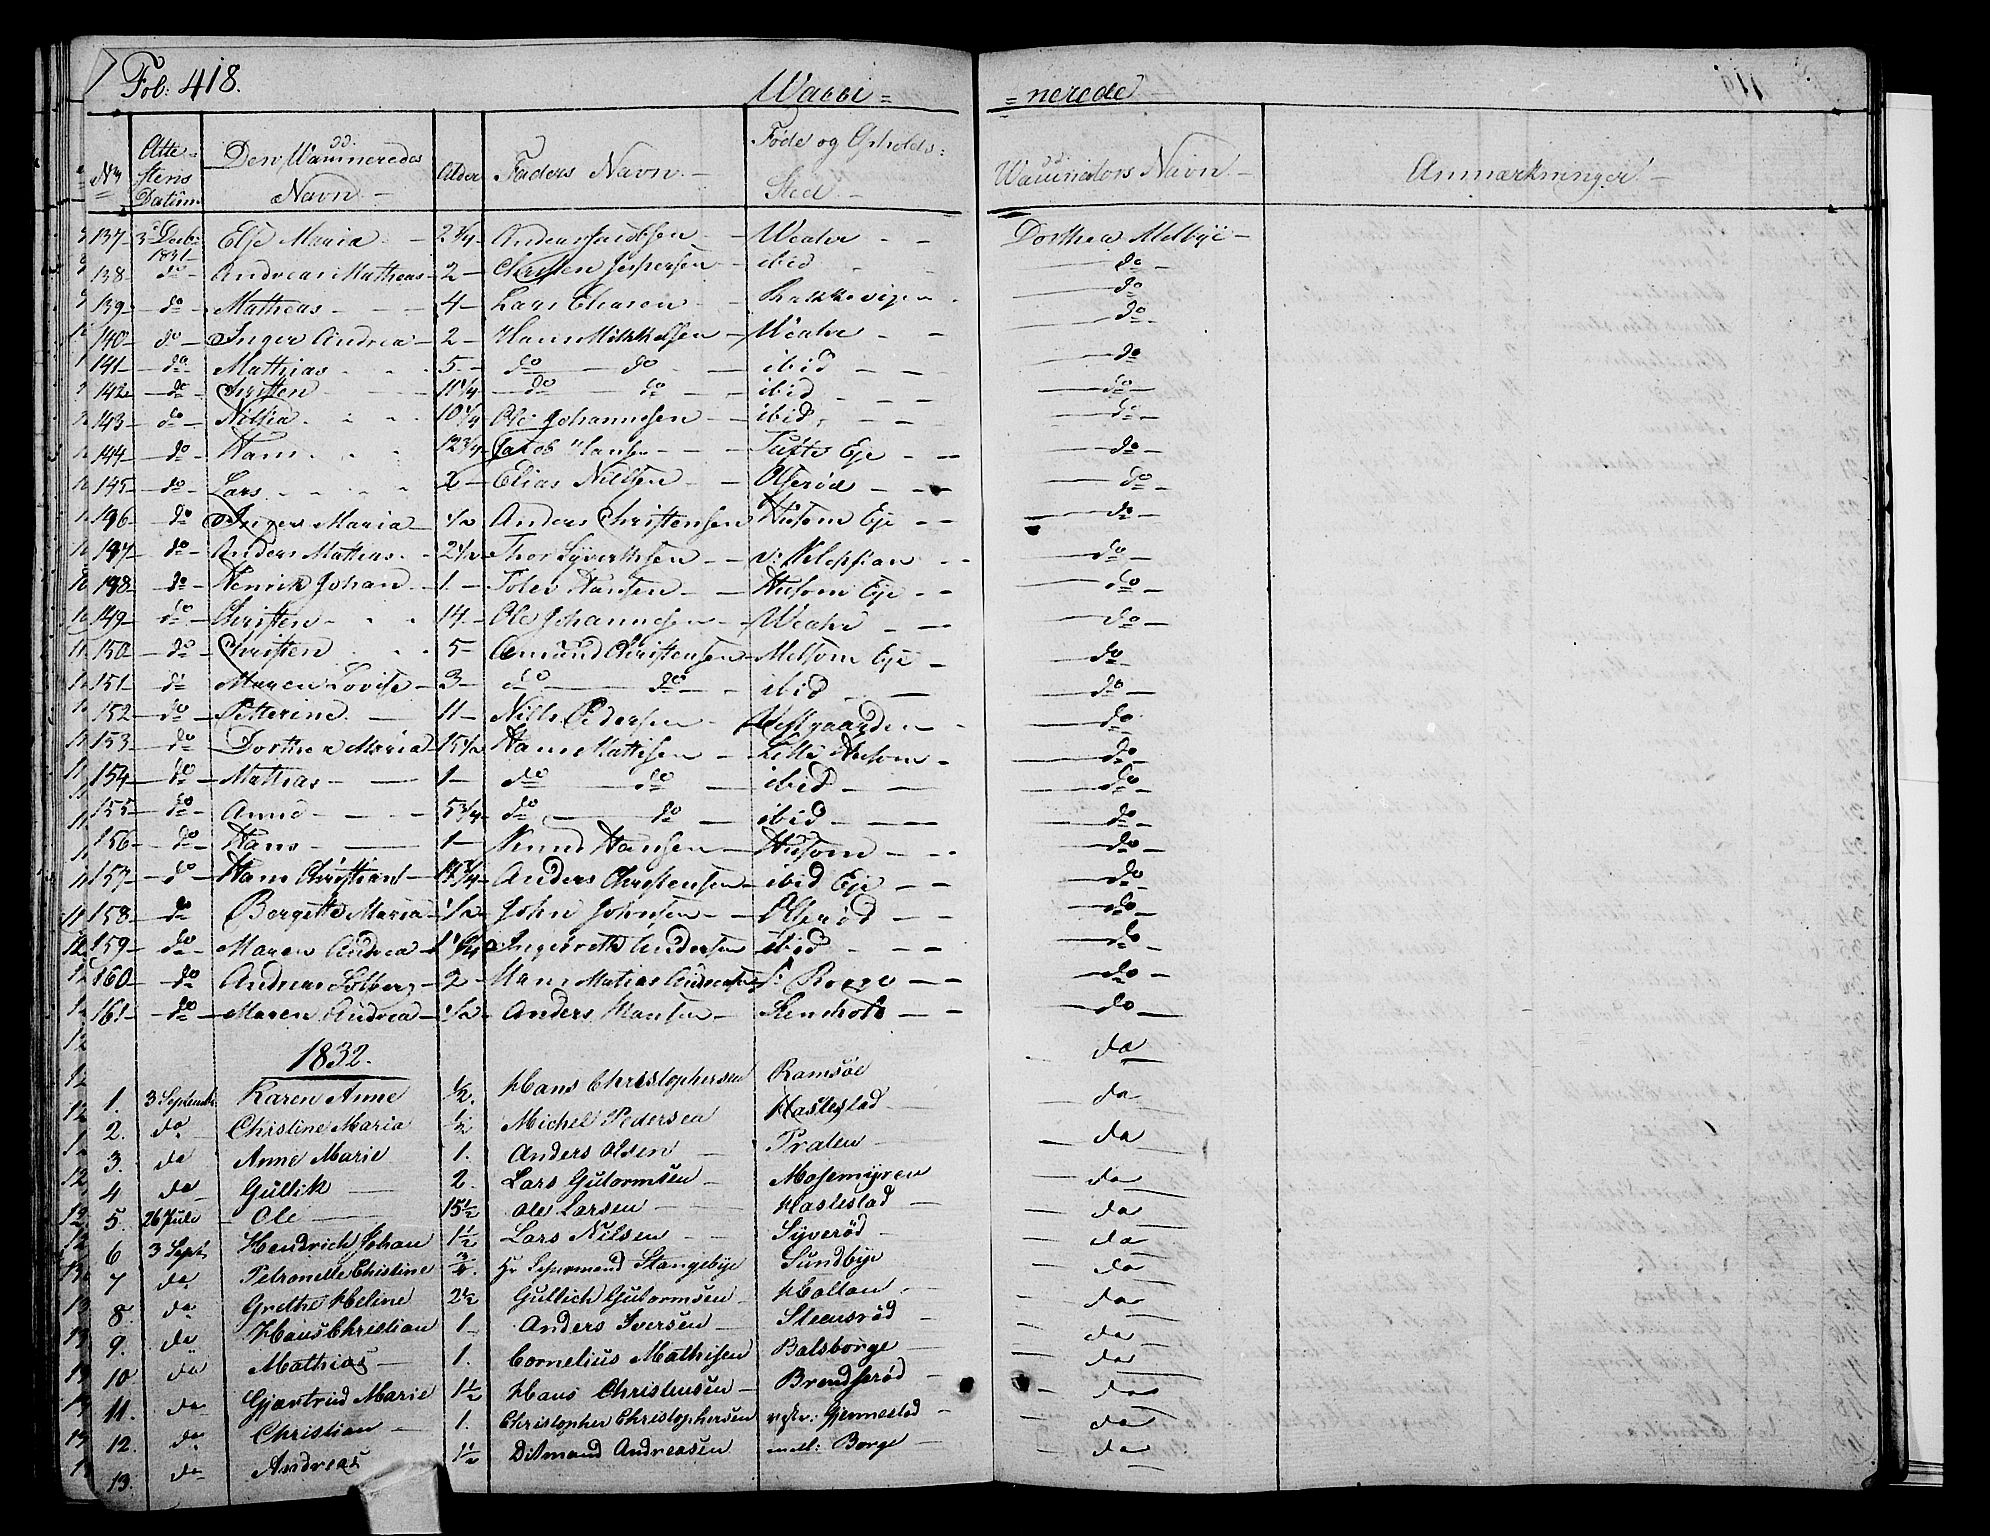 Fol: 418.
Wacci= =nerede
No Attestens Datum Den Waccineredes Navn Alder Faders Navn Føde og Opholds-Sted Waccinators Navn Anmærkninger
137 3 Decb: 1831 Else Maria 2 3/4 Anders Jacobsen Weater Dorthea Melbye
138 do Andreas Mathias 2 Christen Jespersen ibid do
139 do Mathias 4 Lars do
140 do Inger Andrea 2 Hans Mikkelsen Weater do
141 do Mathias 5 do do ibid do
142 do Christen 11 1/4 do do ibid do
143 do Nilsia 10 1/4 Ole Johannesen ibid do
144 do Hans 12 3/4 Jacob Hansen Tufte Eje do
145 do Lars 2 Elias Nilsen Olserød do
146 do Inger Maria 1/2 Anders Christensen Husom Eje do
147 do Anders Mathias 2 1/2 Thor Syvertsen do
148 do Henrik Johan 1 Hansen Husom Eje do
149 do Christen 14 Ole Johannesen Weater do
150 do Christen 5 Amund Christensen Melsom Eje do
151 do Maren Lovise 3 do do ibid do
152 do Petterine 11 Nils Pedersen Vestgaarden do
153 do Dorthea Maria 15 1/2 Hans Mattisen Lille Husom do
154 do Mathias 1 do do ibid do
155 do Anne 5 3/4 do do ibid do
156 do Hans 1 Knud Hansen Husom do
157 do Hans Christian Anders Christensen ibid Eje do
158 do Bergette Maria 1/2 John Johnsen Olserød do
159 do Maren Andrea Ingebreth Andersen ibid do
160 do Andreas Solberg 2 Hans Matias Andreasen do
161 do Maren Andrea 1/2 Anders Hansen Stenholt do
1832.
1. 3 Septemb. Karen Anne 1/2. Hans Christophersen Ramsøe do
2. do Christine Maria 1/2 Michel Pedersen Hastestad do
3. do Anne Marie 1. Anders Olsen Pralen do
4 do Gullik 2. Lars Gutormsen Mosemyren do
5. 26 Julii Ole 15 1/2 Ole Larsen Hastestad do
6 3 Sept. Hendrich Johan 1 1/2 Lars Nilsen Syverød do
7 do Petronelle Christine 3/4. Hr Stangebye Sundbye do
8. do Grethe Heline 2 1/2 Gullich Gutormsen Holtan do
9. do Hans Christian 1 Anders Iversen Steensrød do
10 do Mathias 1. Cornelius Mathisen Balsborge do
11. do Gjærtrud Marie 1 1/2 Hans Christensen Brendserød do
12. do Christian 1. Christopher Christophersen vestr: Gjennestad do
13. do Andreas 1 1/2 Ditmand Andreasen mell: Borge do